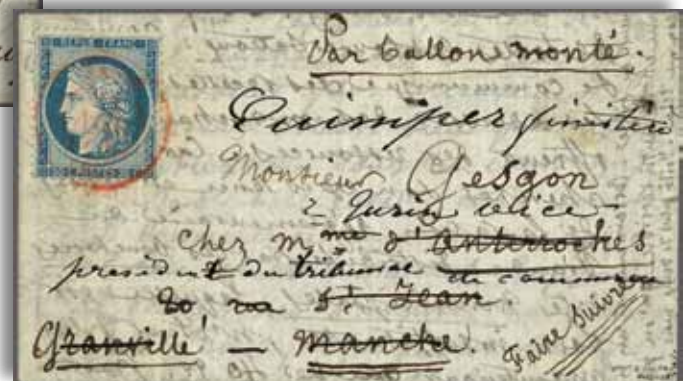 REPUB. FRANC.
Par Ballon monté.
Quimper finistère
Monsieur Gesgon
chez Mme d'Anterroches
président du tribunal de commerce
20, rue St. Jean.
Granville — Manche.
Faire Suivre